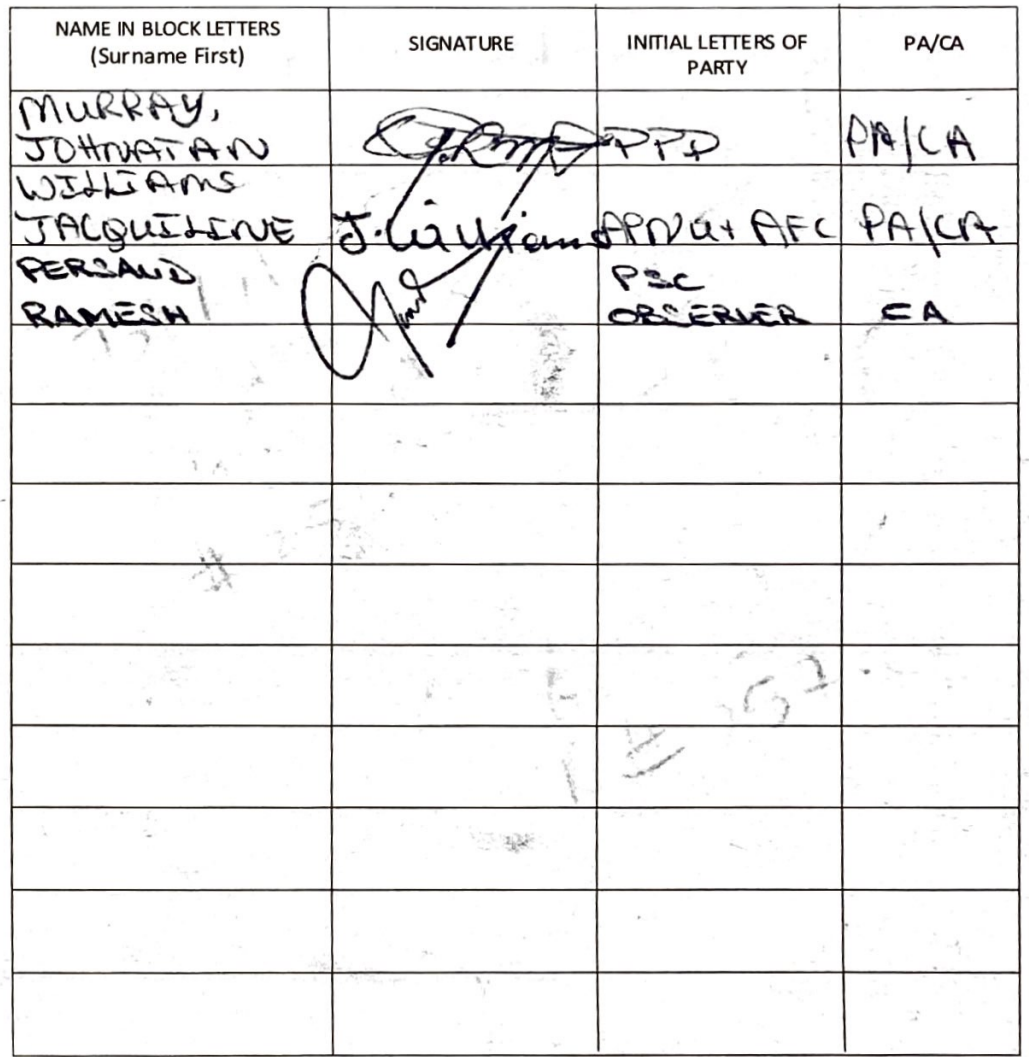 NAME IN BLOCK LETTERS
(Surname First)
SIGNATURE
INITIAL LETTERS OF
PARTY
PA/CA
MURRAY,
JOHNATAN
PPP
PA/CA
WILLIAMS
JACQUILINE
J. Williams
APNU+ AFC
PA/CA
PERSAUD
RAMESH
PSC
OBSERVER
CA